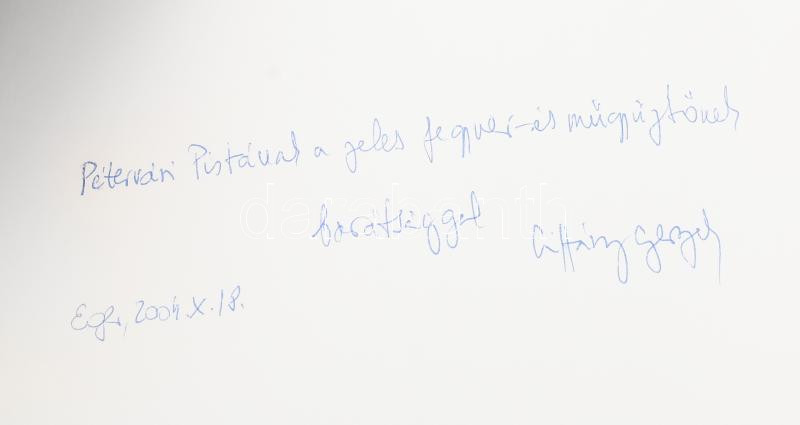 Pétervári Pistának a jeles fegyver-és műgyűjtőnek
barátsággal Csiffáry Gergely
Eger, 2004. X. 18.
darabanth